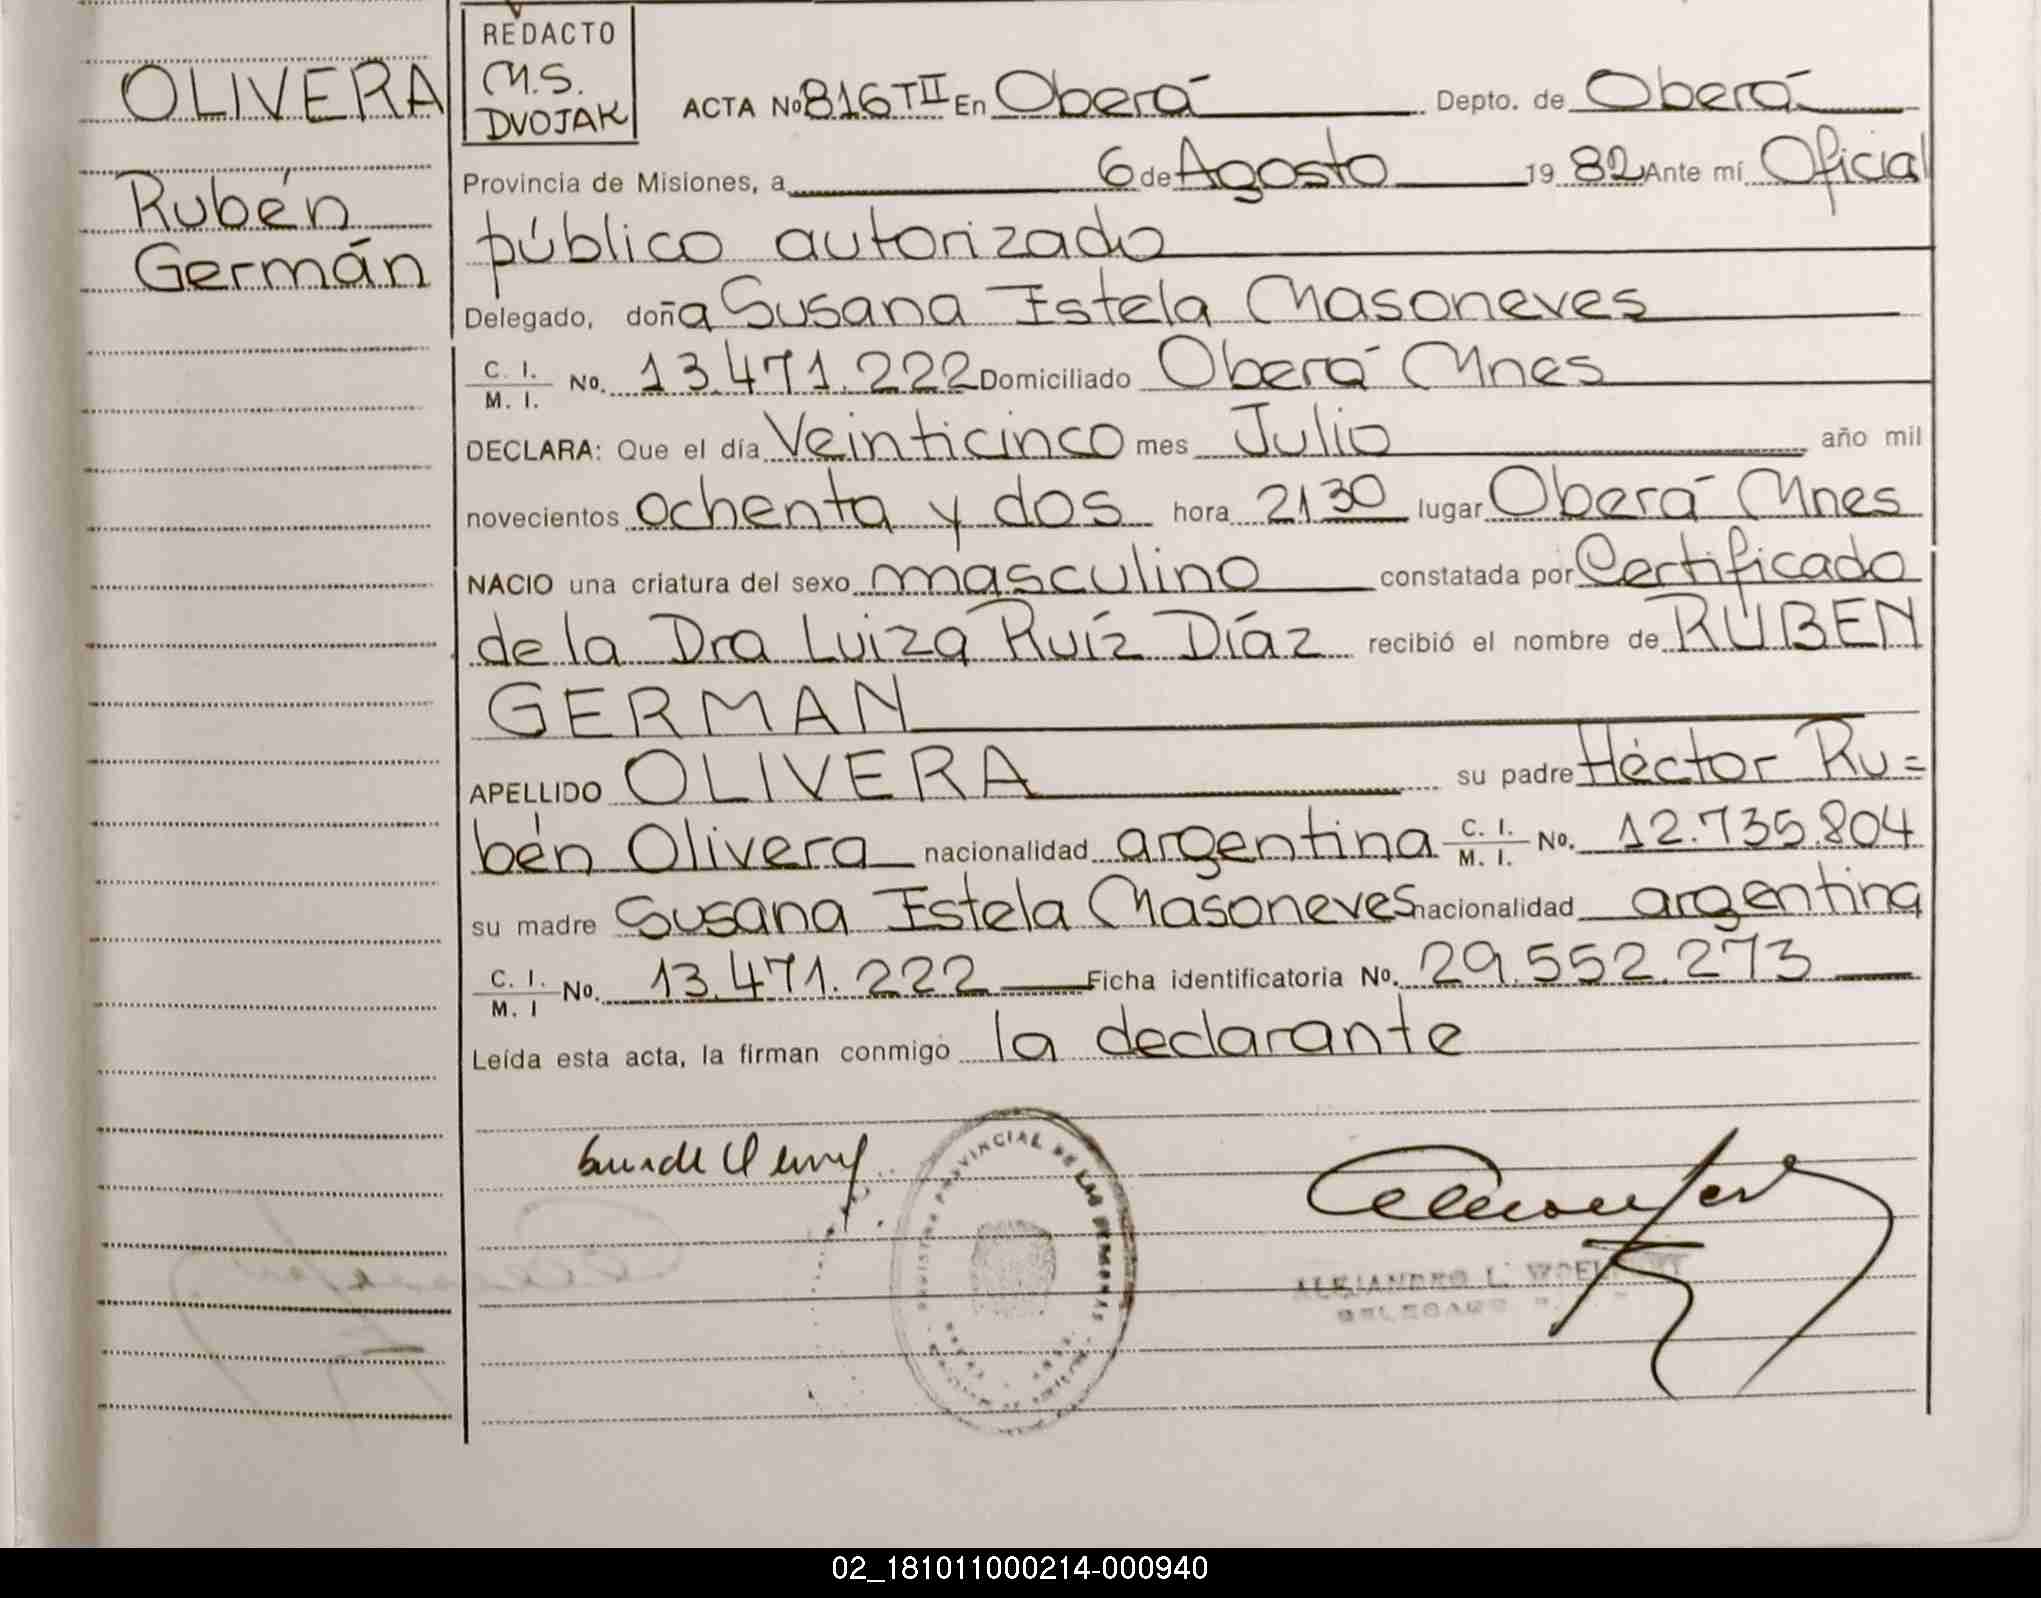 OLIVERA
Rubén
Germán
REDACTO
M.S.
DVOJAK
ACTA No 816 TII En Oberá Depto. de Oberá
Provincia de Misiones, a 6 de Agosto 1982 Ante mí Oficial
público autorizado
Delegado, doña Susana Estela Masoneves
C. I. / M. I. No. 13.471.222 Domiciliado Oberá Mnes
DECLARA: Que el día Veinticinco mes Julio año mil
novecientos ochenta y dos hora 21 30 lugar Oberá Mnes
NACIO una criatura del sexo masculino constatada por Certificado
de la Dra Luiza Ruíz Díaz recibió el nombre de RUBEN
GERMAN
APELLIDO OLIVERA su padre Héctor Ru=
bén Olivera nacionalidad argentina C. I. / M. I. No. 12.735.804
su madre Susana Estela Masoneves nacionalidad argentina
C. I. / M. I No. 13.471.222 Ficha identificatoria No. 29.552.273
Leída esta acta, la firman conmigo la declarante
PROVINCIAL DE LAS PERSONAS
ALEJANDRO L.
DELEGADO
02_181011000214-000940